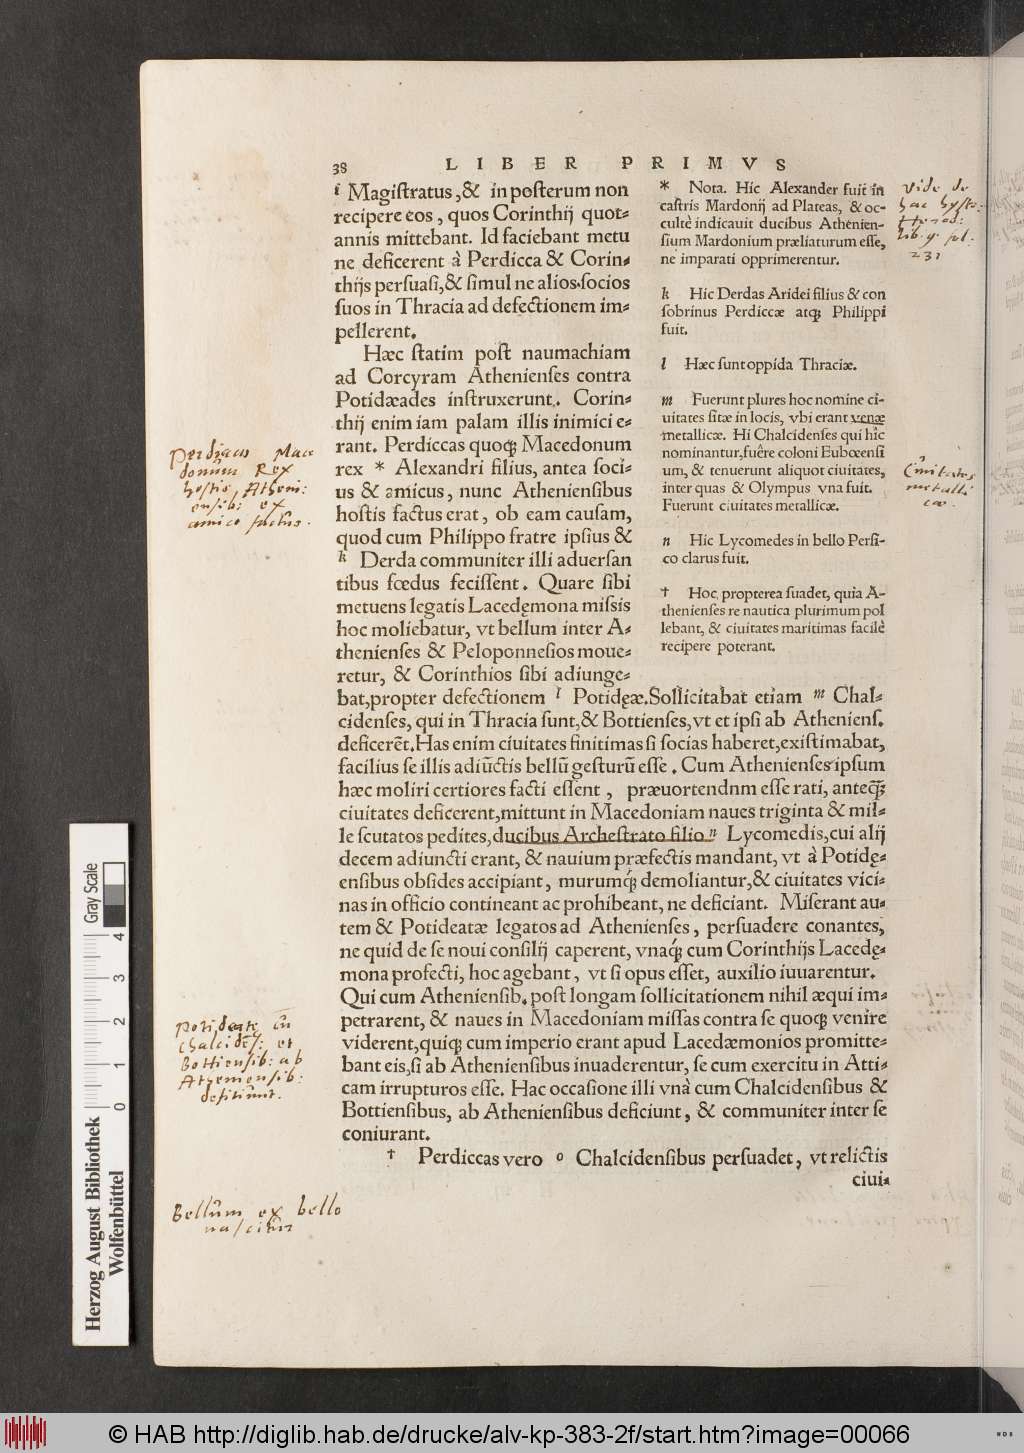 38
LIBER PRIMVS
i Magiſtratus,& in poſterum non
recipere eos, quos Corinthij quot=
annis mittebant. Id faciebant metu
ne deficerent à Perdicca & Corin=
thijs perſuaſi,& ſimul ne alios ſocios
ſuos in Thracia ad defectionem im=
pellerent.
Hæc ſtatim poſt naumachiam
ad Corcyram Athenienſes contra
Potidæades inſtruxerunt. Corin=
thij enim iam palam illis inimici e=
rant. Perdiccas quoqꝫ Macedonum
rex * Alexandri filius, antea ſoci=
us & amicus, nunc Athenienſibus
hoſtis factus erat, ob eam cauſam,
quod cum Philippo fratre ipſius &
k Derda communiter illi aduerſan
tibus fœdus feciſſent. Quare ſibi
metuens legatis Lacedęmona miſsis
hoc moliebatur, vt bellum inter A=
thenienſes & Peloponneſios moue=
retur, & Corinthios ſibi adiunge=
bat,propter defectionem l Potidęæ.Sollicitabat etiam m Chal=
cidenſes, qui in Thracia ſunt,& Bottienſes,vt et ipſi ab Athenienſ.
deficerēt.Has enim ciuitates finitimas ſi ſocias haberet,exiſtimabat,
facilius ſe illis adiūctis bellū geſturū eſſe. Cum Athenienſes ipſum
hæc moliri certiores facti eſſent, præuortendnm eſſe rati, anteq̃ꝫ
ciuitates deficerent,mittunt in Macedoniam naues triginta & mil=
le ſcutatos pedites,ducibus Archeſtrato filio n Lycomedis,cui alij
decem adiuncti erant, & nauium præfectis mandant, vt à Potidę=
enſibus obſides accipiant, murumq́; demoliantur,& ciuitates vici=
nas in officio contineant ac prohibeant, ne deficiant. Miſerant au=
tem & Potideatæ legatos ad Athenienſes, perſuadere conantes,
ne quid de ſe noui conſilij caperent, vnaq́; cum Corinthijs Lacedę=
mona profecti, hoc agebant, vt ſi opus eſſet, auxilio iuuarentur.
Qui cum Athenienſib. poſt longam ſollicitationem nihil æqui im=
petrarent, & naues in Macedoniam miſſas contra ſe quoqꝫ venire
viderent,quiqꝫ cum imperio erant apud Lacedæmonios promitte=
bant eis,ſi ab Athenienſibus inuaderentur, ſe cum exercitu in Atti=
cam irrupturos eſſe. Hac occaſione illi vnà cum Chalcidenſibus &
Bottienſibus, ab Athenienſibus deficiunt, & communiter inter ſe
coniurant.
† Perdiccas vero o Chalcidenſibus perſuadet, vt relictis
ciui=
* Nota. Hic Alexander fuit in
caſtris Mardonij ad Plateas, & oc-
cultè indicauit ducibus Athenien-
ſium Mardonium præliaturum eſſe,
ne imparati opprimerentur.
k Hic Derdas Aridei filius & con
ſobrinus Perdiccæ atqꝫ Philippi
fuit.
l Hæc ſunt oppida Thraciæ.
m Fuerunt plures hoc nomine ci-
uitates ſitæ in locis, vbi erant venæ
metallicæ. Hi Chalcidenſes qui hîc
nominantur,fuêre coloni Eubœenſi
um, & tenuerunt aliquot ciuitates,
inter quas & Olympus vna fuit.
Fuerunt ciuitates metallicæ.
n Hic Lycomedes in bello Perſi-
co clarus fuit.
† Hoc propterea ſuadet, quia A-
thenienſes re nautica plurimum pol
lebant, & ciuitates maritimas facilè
recipere poterant.
Vide de
hac hysto:
Herod:
lib. 9. pl.
231
Ciuitates
metalli
cae.
Perdiccas Mace
donum Rex
hostis Atheni:
ensib: ex
amico factus.
Potideate cū
Chalcidēs: et
Bottiensib: ab
Atheniensib:
desitiunt.
Bellum ex bello
nascitur
Gray Scale
0 1 2 3 4
Herzog August Bibliothek
Wolfenbüttel
© HAB http://diglib.hab.de/drucke/alv-kp-383-2f/start.htm?image=00066